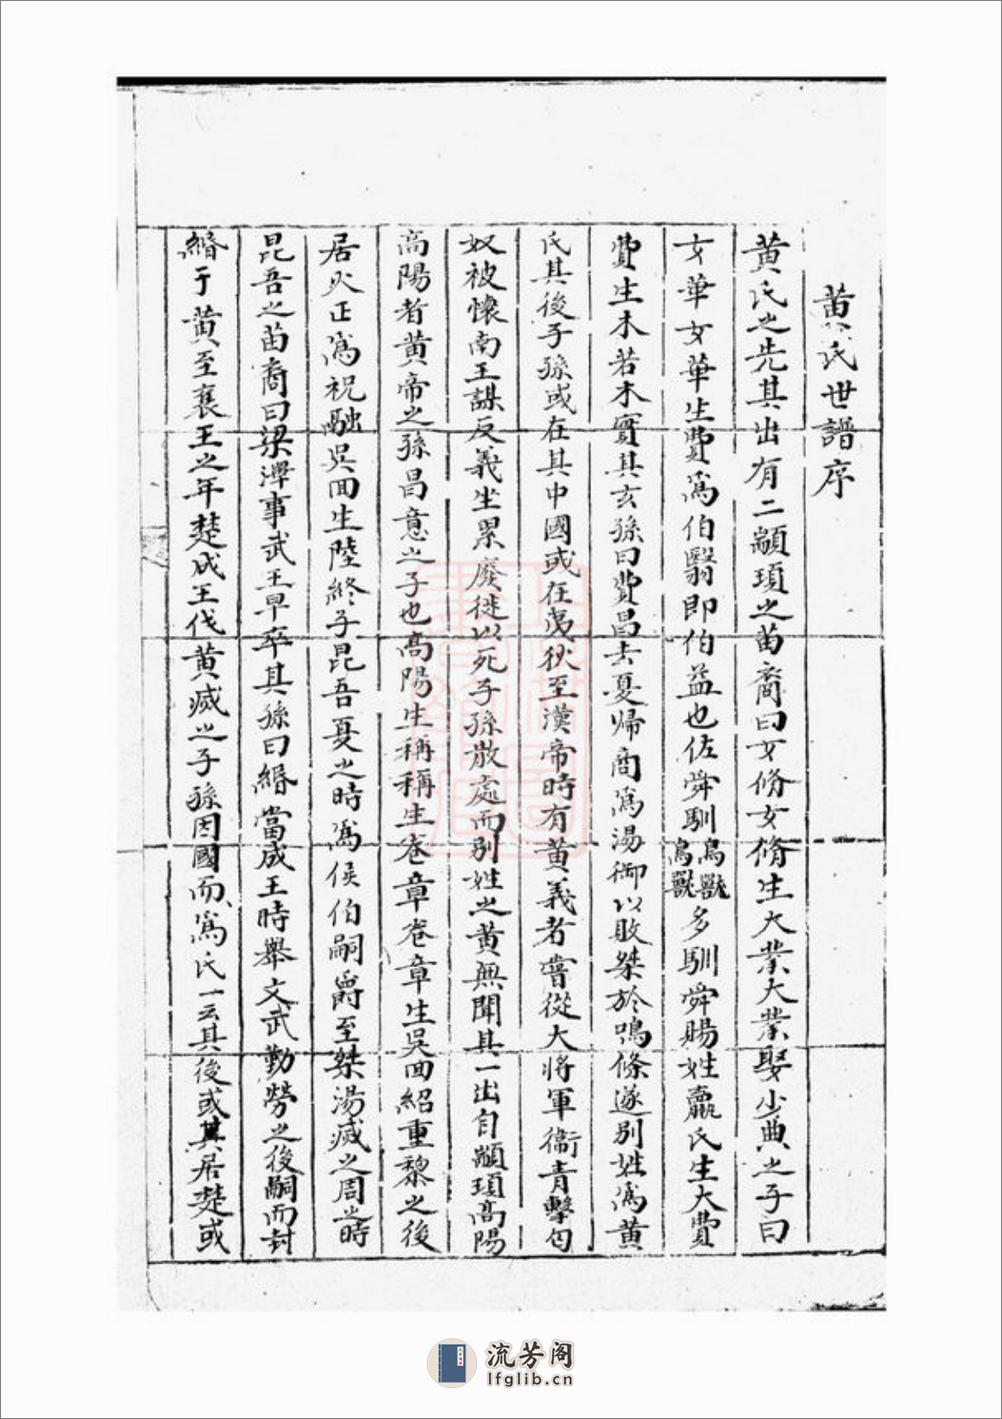 黄氏世譜序
黄氏之先其出有二顓頊之苗裔曰女脩女脩生大業大業娶少典之子曰
女華女華生費爲伯翳即伯益也佐舜馴鳥獸鳥獸多馴舜賜姓嬴氏生大費
費生木若木實其玄孫曰費昌去夏歸商爲湯御以敗桀於鳴條遂别姓爲黄
氏其後子孫或在其中國或在夷狄至漢帝時有黄義者嘗從大將軍衞青擊匈
奴被懷南王謀反義坐累廢徙以死子孫散處而别姓之黄無聞其一出自顓頊高陽
高陽者黄帝之孫昌意之子也高陽生稱稱生卷章卷章生吳回紹重黎之後
居火正爲祝融吳回生陸終子昆吾夏之時爲侯伯嗣爵至桀湯滅之周之時
昆吾之苗裔曰梁澤事武王早卒其孫曰緡當成王時舉文武勤勞之後嗣而封
緡于黄至襄王之年楚成王伐黄滅之子孫因國而爲氏一云其後或其居楚或
流芳阁
lfglib.cn